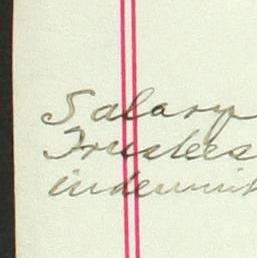 Salary
Trustees
indemnit